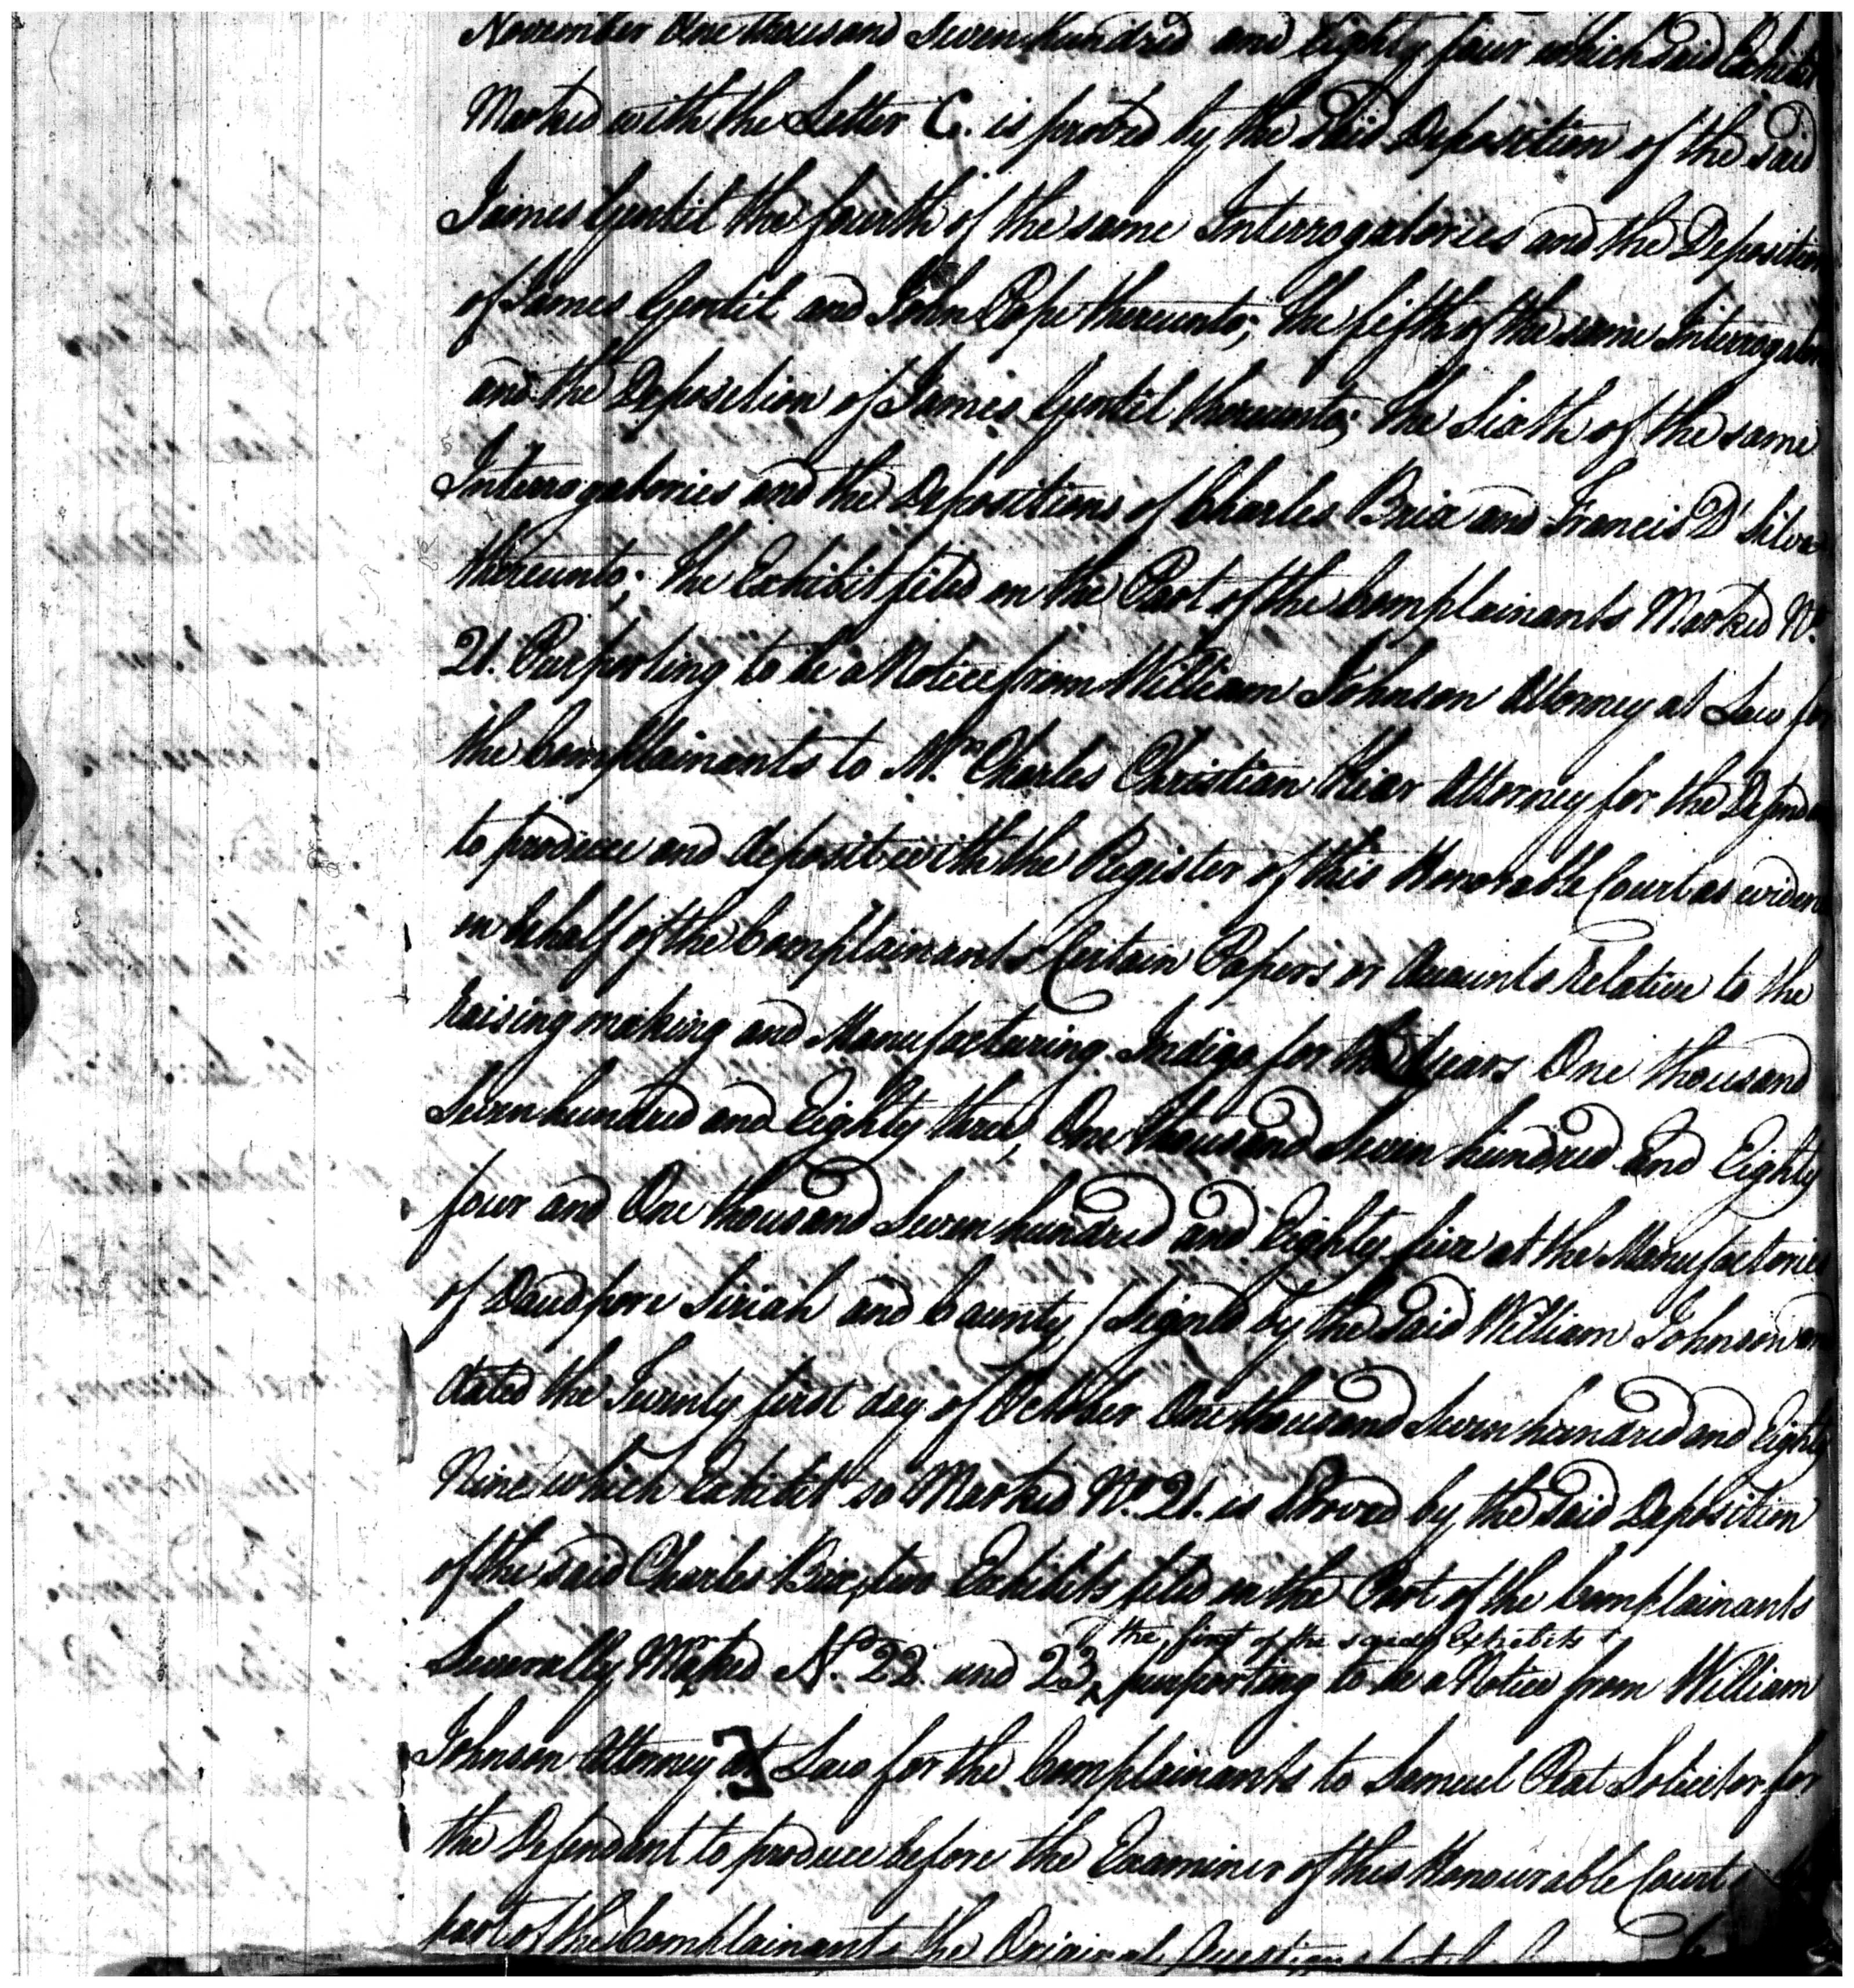 November One thousand Seven hundred and Eighty four which said Exhibit
Marked with the Letter C. is proved by the said Deposition of the said
James Gentil the fourth of the same Interrogatories and the Deposition
of James Gentil and John Pope thereunto; the fifth of the same Interrogator
and the Deposition of James Gentil thereunto; the Sixth of the same
Interrogatories and the Depositions of Charles Brix and Francis D'Silva
thereunto; the Exhibit filed on the Part of the Complainants Marked No.
21. Purporting to be a Notice from William Johnson Attorney at Law for
the Complainants to Mr. Charles Christian Attorney for the Defendan
to produce and deposit with the Register of this Honorable Court as eviden
on behalf of the Complainants Certain Papers or Accounts relative to the
raising making and Manufacturing Indigo for the Years One thousand
Seven hundred and Eighty three, One thousand Seven hundred and Eighty
four and One thousand Seven hundred and Eighty five at the Manufactories
of Daudpore Siriah and Signed by the said William Johnson an
dated the Twenty first day of October One thousand Seven hundred and Eighty
Nine which Exhibit so Marked No. 21. is Proved by the said Deposition
of the said Charles Brix, two Exhibits filed on the Part of the Complainants
the first of the said Exhibits
Severally Marked No. 22 and 23, purporting to be a Notice from William
Johnson Attorney at Law for the Complainants to Samuel Peat Solicitor for
the Defendant to produce before the Examiner of this Honourable Court
part of the Complainants the Original